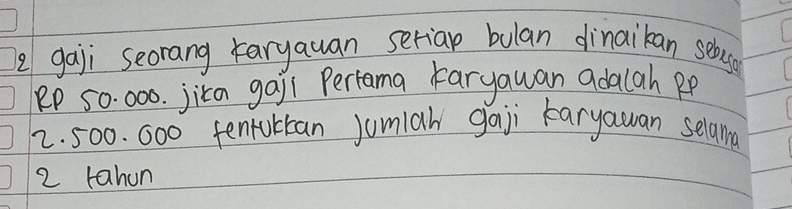 2 gaji seorang karyawan setiap bulan dinaikan sebesar
RP 50.000. jika gaji Pertama karyawan adalah RP
2.500.000 tentukkan jumlah gaji karyawan selama
2 tahun